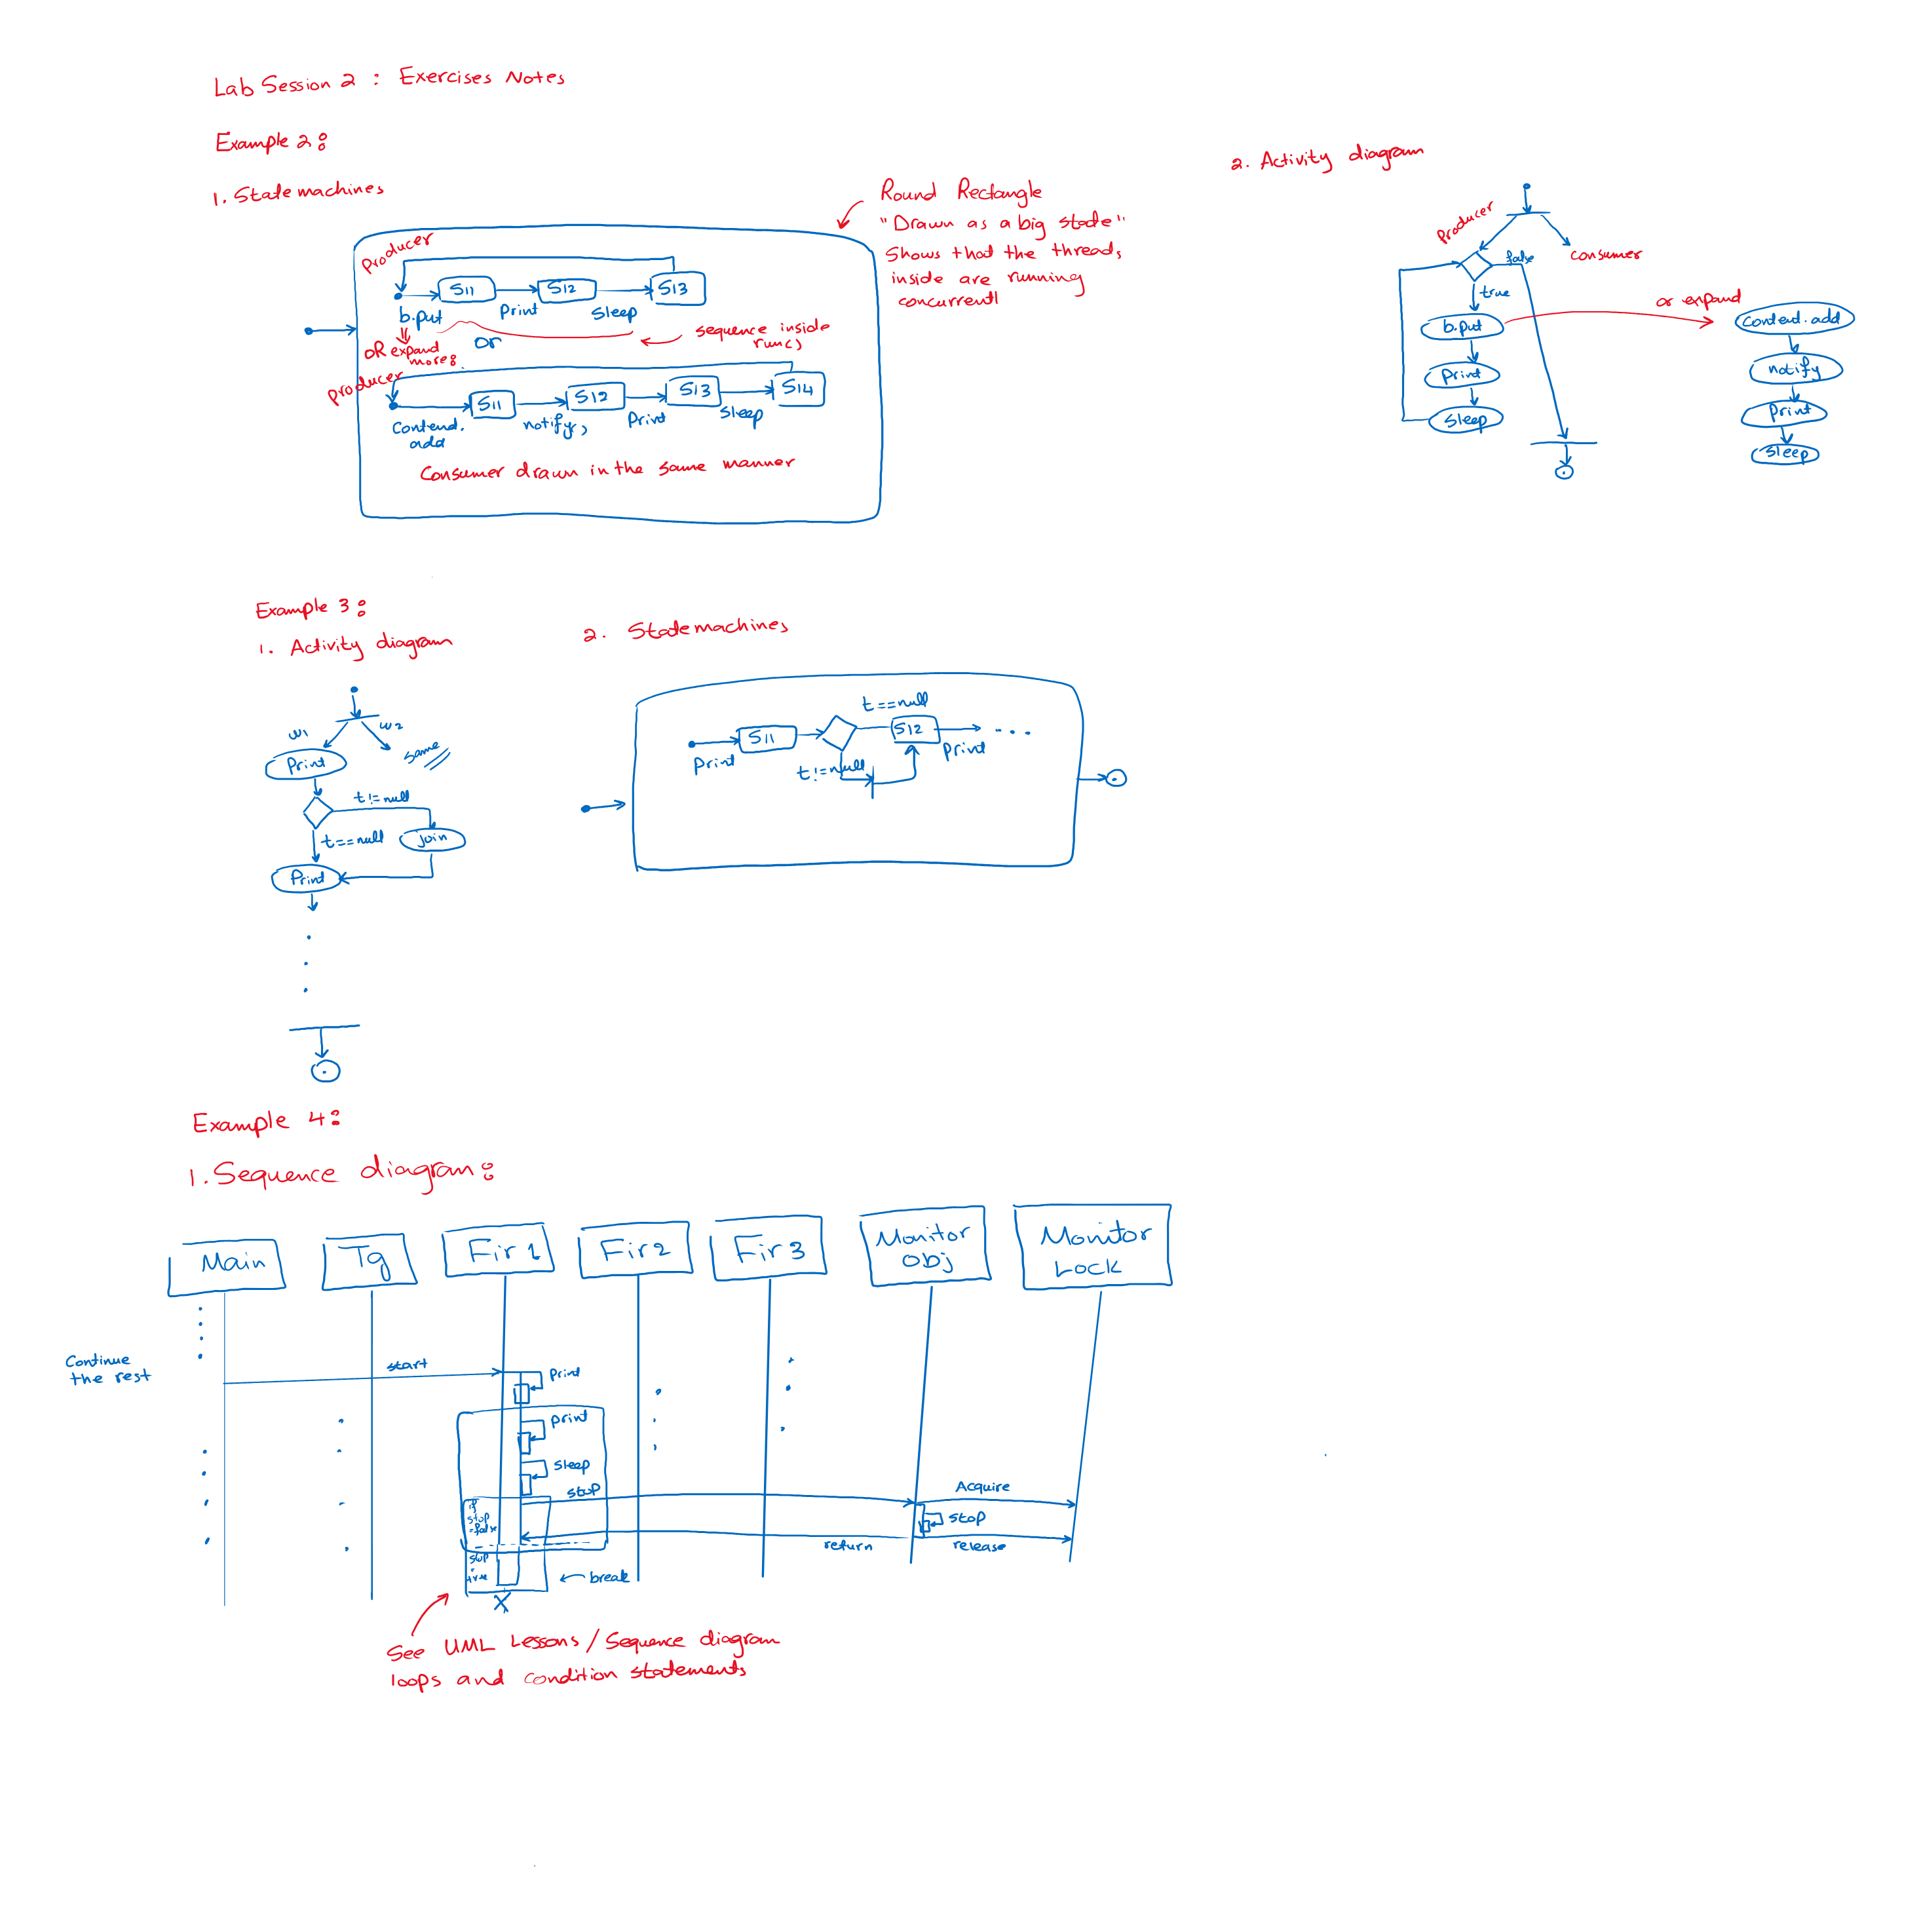 Lab Session 2 : Exercises Notes
Example 2:
1. State machines
Round Rectangle
"Drawn as a big state"
Shows that the threads
inside are running
concurrentl
Producer
S11
S12
S13
b.put
Print
Sleep
OR expand
more:
or
sequence inside
run()
Producer
S11
S12
S13
S14
Contend.
add
notify,
Print
Sleep
Consumer drawn in the same manner
2. Activity diagram
Producer
Consumer
false
true
b.put
Print
Sleep
or expand
Contend.add
notify
Print
Sleep
Example 3:
1. Activity diagram
W1
W2
Same
Print
t!=null
t==null
join
Print
2. State machines
t==null
S11
S12
Print
Print
t!=null
Example 4:
1. Sequence diagram:
Main
Tg
Fir 1
Fir 2
Fir 3
Monitor
Obj
Monitor
Lock
Continue
the rest
start
Print
print
Sleep
stop
Acquire
if
stop
=false
stop
return
release
stop
=
true
break
See UML Lessons / Sequence diagram
loops and condition statements